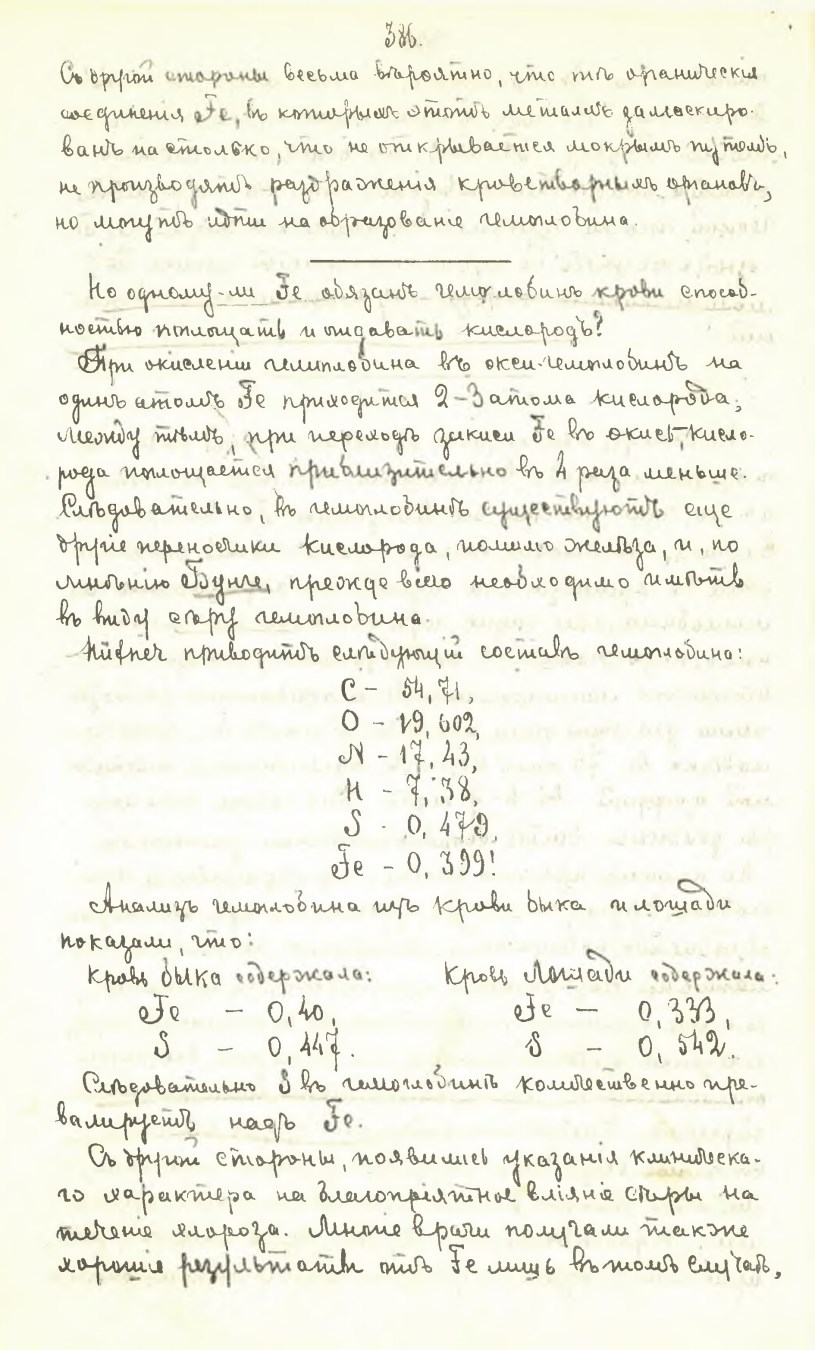 386.
Съ другой стороны весьма вѣроятно, что тѣ органическiя
соединенiя Fe, въ которыхъ этотъ металлъ замаскиро-
ванъ на столько, что не открывается мокрымъ путемъ,
не производятъ раздраженiя кроветворныхъ органовъ,
но могутъ идти на образованiе гемоглобина.
Но одному-ли Fe обязанъ гемоглобинъ крови способ-
ностью поглощать и отдавать кислородъ?
При окисленiи гемоглобина въ окси-гемоглобинъ на
одинъ атомъ Fe приходится 2-3 атома кислорода;
между тѣмъ, при переходѣ закиси Fe въ окись, кисло-
рода поглощается приблизительно въ 4 раза меньше.
Слѣдовательно, въ гемоглобинѣ существуютъ еще
другiе переносчики кислорода, помимо желѣза, и, по
мнѣнiю Бунге, прежде всего необходимо имѣть
въ виду сѣру гемоглобина.
Hüfner приводитъ слѣдующiй составъ гемоглобина:
C - 54,71,
O - 19,602,
N - 17,43,
H - 7,38,
S - 0,479,
Fe - 0,399!
Анализъ гемоглобина изъ крови быка и лошади
показали, что:
Кровь быка содержала: Кровь лошади содержала:
Fe - 0,40, Fe - 0,333,
S - 0,447. S - 0,542.
Слѣдовательно S въ гемоглобинѣ количественно пре-
валируетъ надъ Fe.
Съ другой стороны, появились указанiя клиническа-
го характера на благопрiятное влiянiе сѣры на
теченiе хлороза. Многiе врачи получали также
хорошiе результаты отъ Fe лишь въ томъ случаѣ,